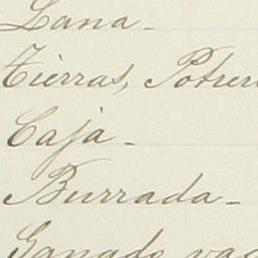 Lana_
Tierras, Potrer
Caja_
Burrada_
Ganado vac